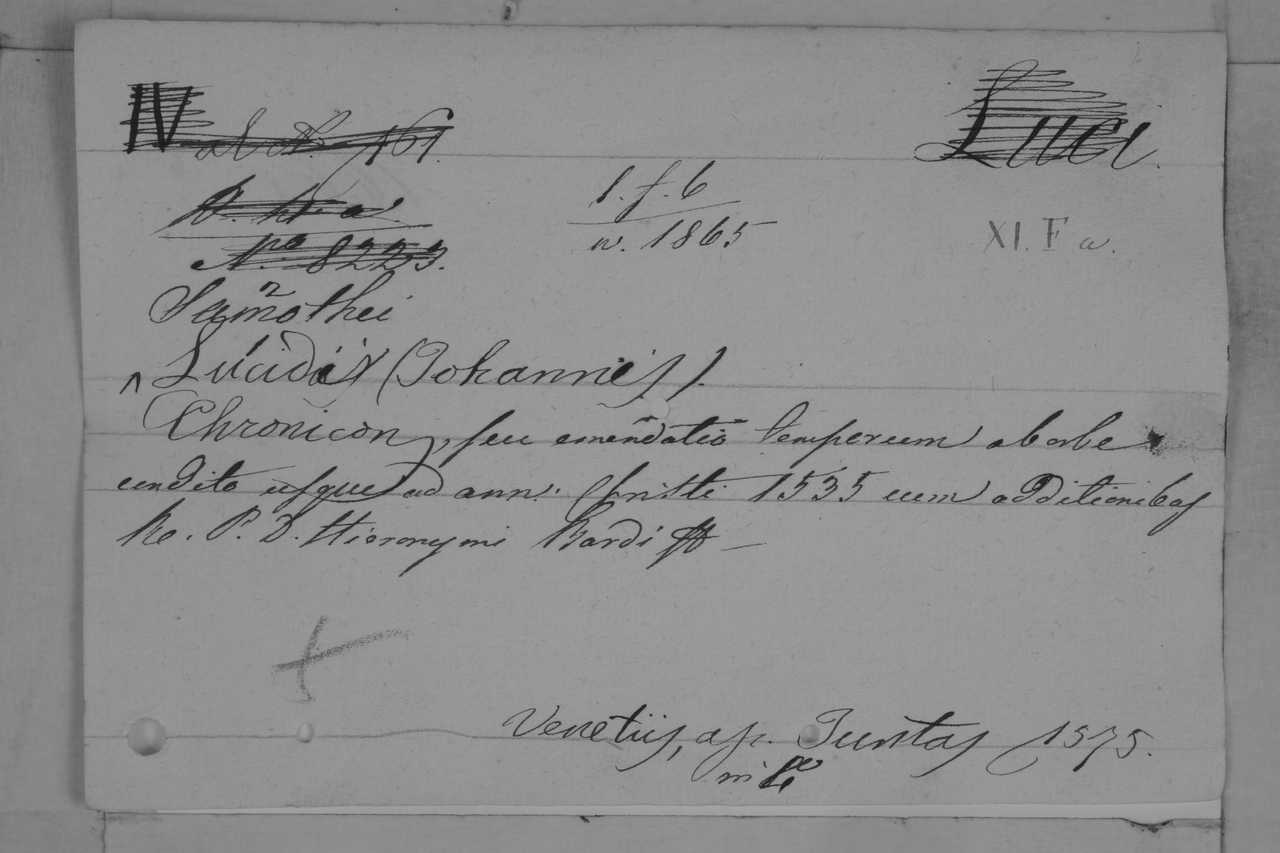 IV ad No. 161. Luci.
No. 8223.
1. f. 6
n. 1865
XI. F a.
Samothei
Lucidi (Johannis).
Chronicon, seu emendatio temporum ab orbe
condito usque ad ann. Christi 1535 cum additionibus
R. P. D. Hieronymi Bardi
Venetiis, ap. Juntas 1575.
in 4o